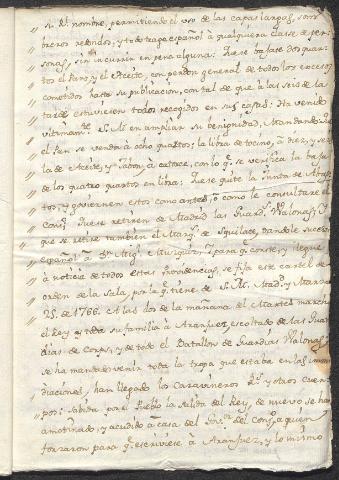 su Rl. nombre, permitiendo el uso de las capas largas, som-
breros redondos, y todo traga español à qualquiera clase de per-
sonas, sin incurrir en pena alguna: Que se bajase dos quar-
tos el Pan, y el Aceite, con perdon general de todos los excesos
cometidos hasta su publicacion, con tal de que à las seis de la
tarde estuviesen todos recogidos en sus casas: Ha venido
ultimamte. S. M. en ampliar su benignidad, Mandando q.
el Pan se venda à ocho quartos; la libra de tocino, à diez, y se
la de Aceite, y Jabon, à catorce, con lo q. se verifica la baja
de los quatro quartos en libra: Que se quite la Junta de Abas-
tos, y goviernen estos como antes, ò como le consultare el
Consº. Que se retiren de Madrid las Guards. Walonas; y
que se retire tambien el Marqs. de Squilace, dando le succesor
español à Dn. Migl. de Muzquiz. Y para q. conste, y llegue
à noticia de todos estas providencias, se fija este cartel de
orden de la Sala, por la q. tiene de S. M. Madrid y Marzo
25. de 1766. A las dos de la mañana del Martes marchó
el Rey, y toda su familia à Aranjuez, escoltado de las Guar-
dias de Corps, y de todo el Batallon de Guardias Walonas:
se ha mandado venir toda la tropa que estaba en las inme-
diaciones, han llegado los Caravineros Rs. y otros cuer-
pos: Sabida por el Pueblo la salida del Rey, de nuevo se ha
amotinado, y acudido à casa del Govor. del Consº. à quien
forzaron para q. escriviese à Aranjuez, y lo mismo